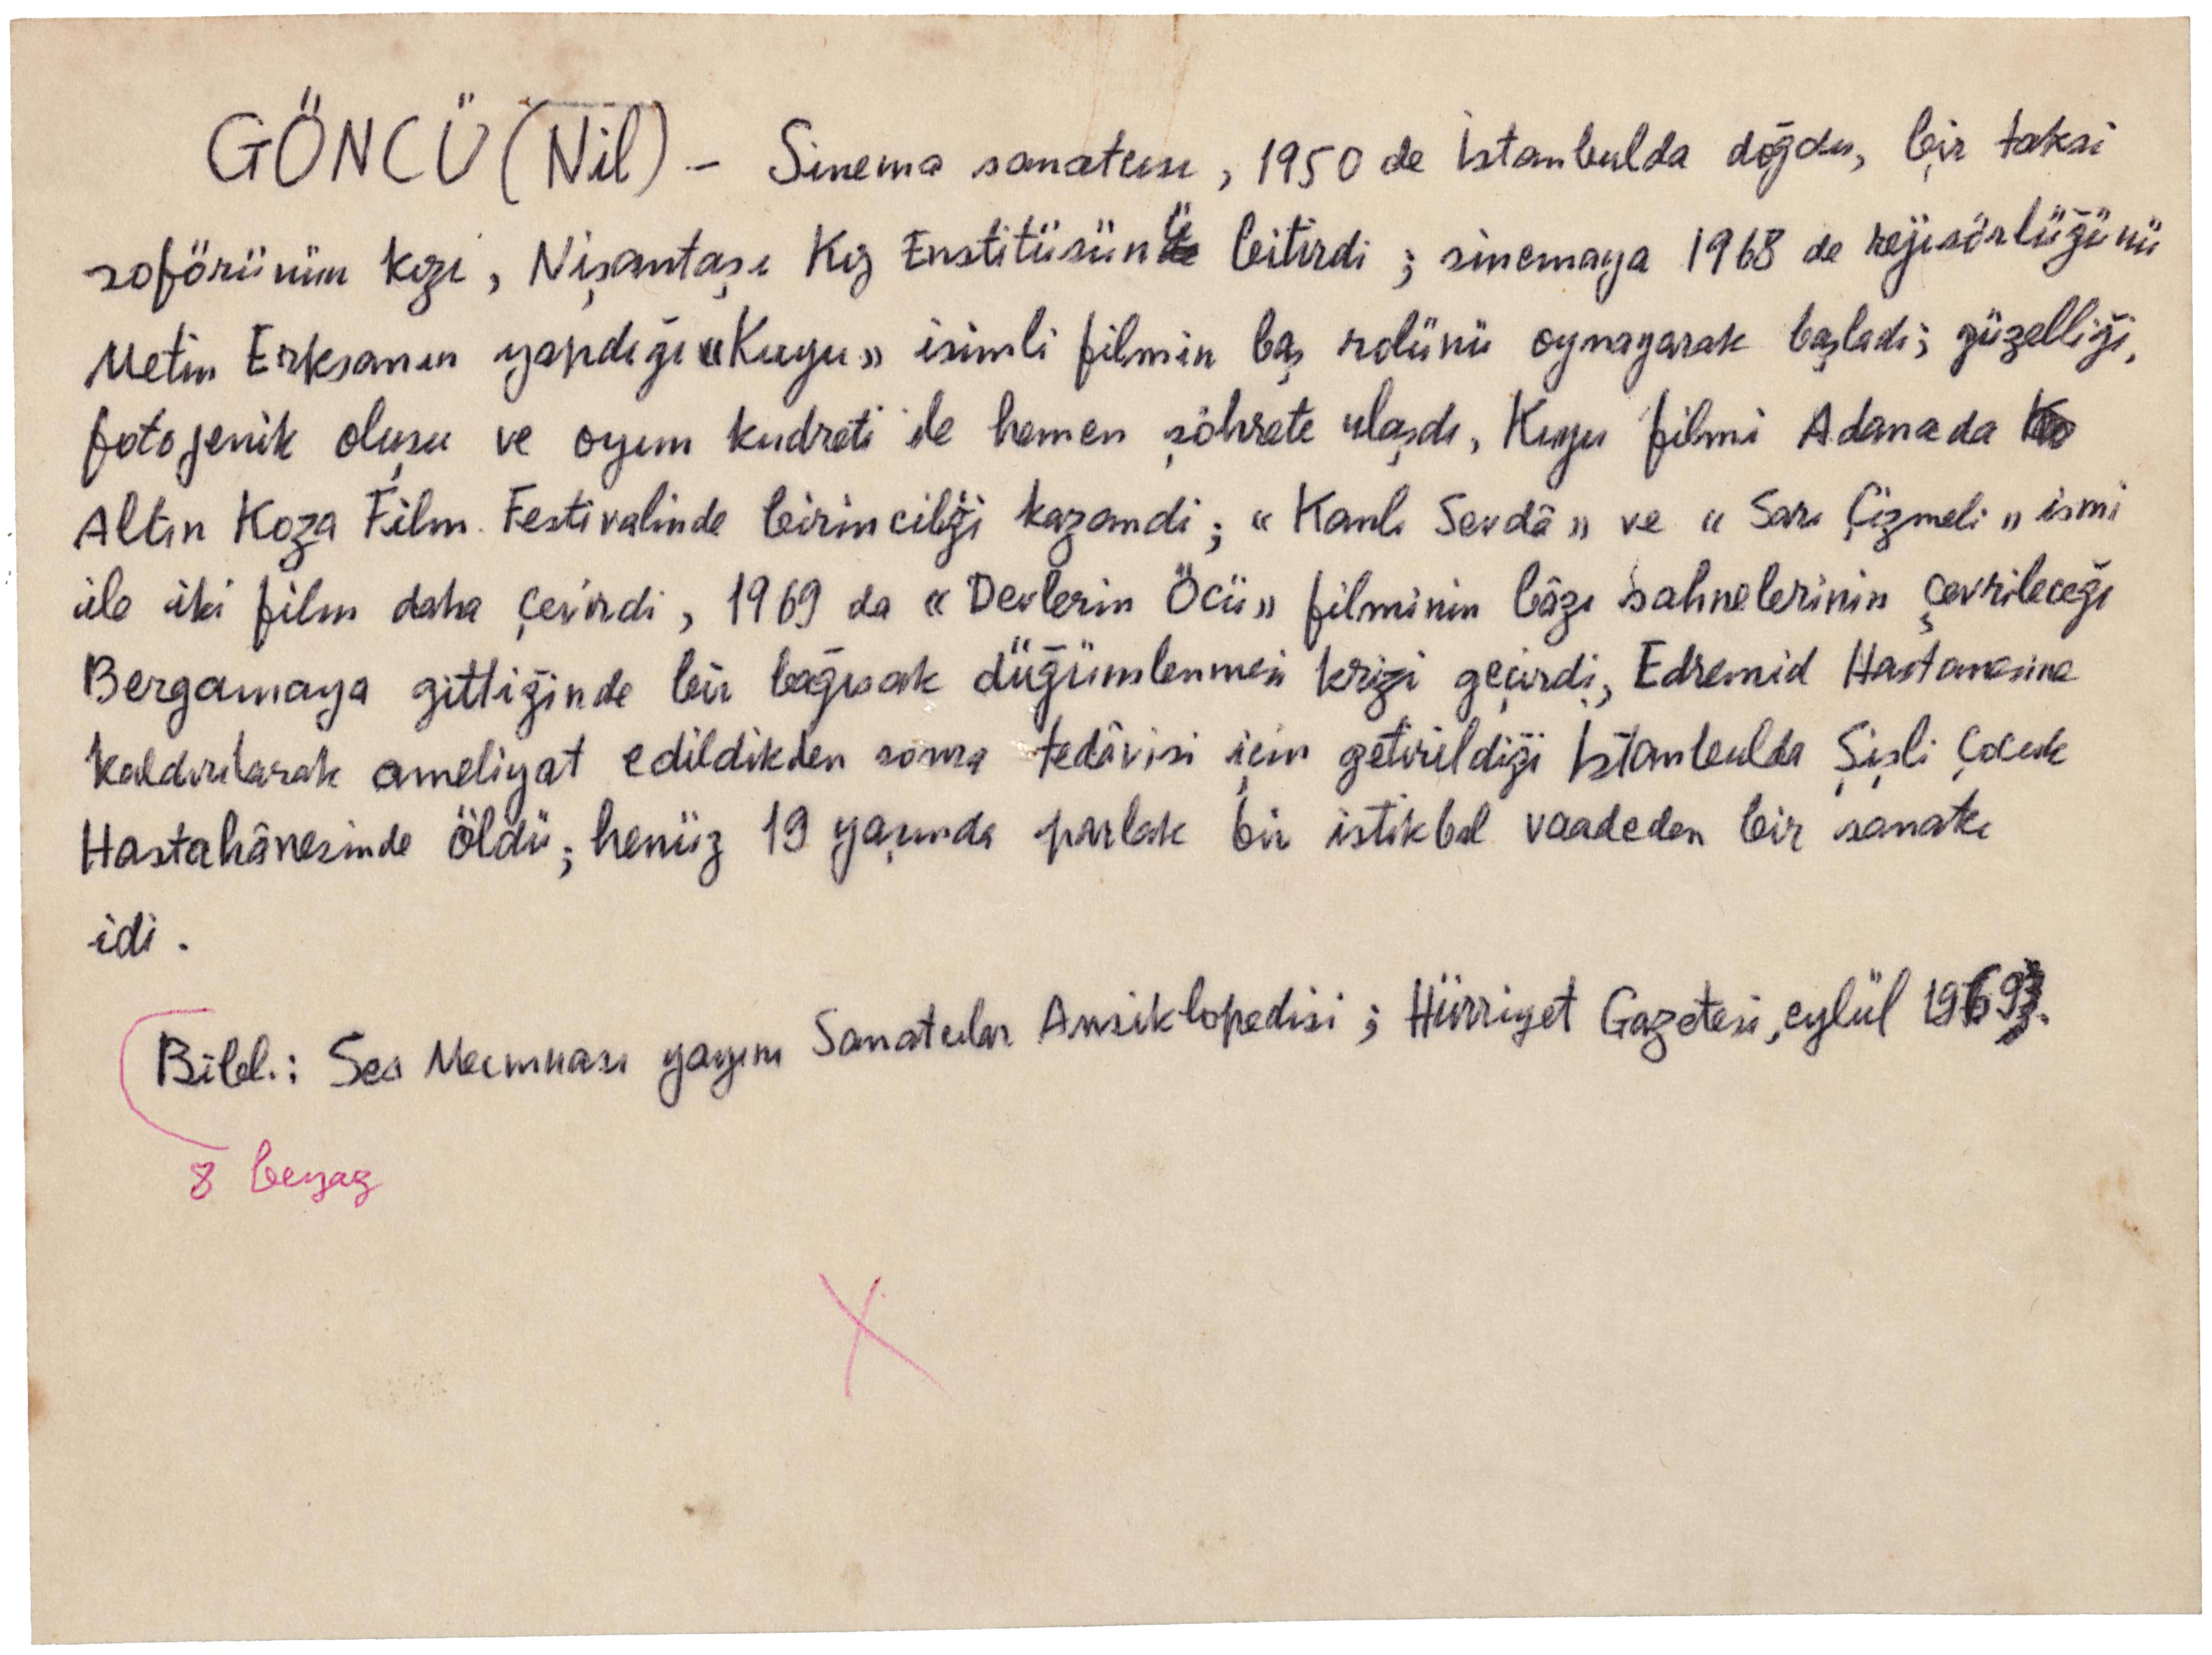 GÖNCÜ (Nil) – Sinema sanatcısı, 1950 de İstanbulda doğdu, bir taksi
şoförünün kızı, Nişantaşı Kız Enstitüsünü bitirdi; sinemaya 1968 de rejisörlüğünü
Metin Erksanın yapdığı «Kuyu» isimli filmin baş rolünü oynayarak başladı; güzelliği,
fotojenik oluşu ve oyun kudreti ile hemen şöhrete ulaşdı, Kuyu filmi Adanada
Altın Koza Film Festivalinde birinciliği kazandı; «Kanlı Sevdâ» ve «Sarı Çizmeli» ismi
ile iki film daha çevirdi, 1969 da «Devlerin Öcü» filminin bâzı sahnelerinin çevrileceği
Bergamaya gittiğinde bir bağısak düğümlenmesi krizi geçirdi, Edremid Hastanesine
kaldırılarak ameliyat edildikden sonra tedâvisi için getirildiği İstanbulda Şişli Çocuk
Hastahânesinde öldü; henüz 19 yaşında parlak bir istikbal vaadeden bir sanatcı
idi.
Bibl.: Ses Mecmuası yayını Sanatcılar Ansiklopedisi; Hürriyet Gazetesi, eylül 1969.
8 beyaz